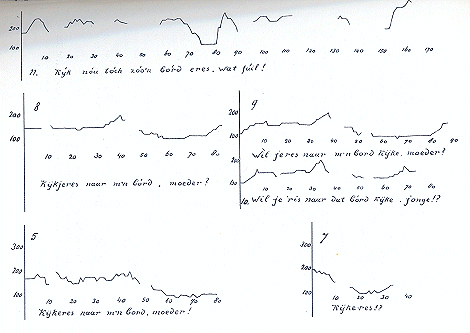 100
10 20 30 40 50 60 70 80 90 100 110 120 130 140 150 160 170
11. Kijk nóu tóch zóo'n bórd eres, wat fúil!
8
200
100
10 20 30 40 50 60 70 80
Kijkjeres naar m'n bórd, moeder?
9
200
100
10 20 30 40 50 60 70 80 90
Wil jeres naar m'n bord kijke, moeder!
200
100
10 20 30 40 50 60 70 80
10. Wil je 'ris naar dat bórd kijke, jonge!?
5
300
200
100
10 20 30 40 50 60 70 80
Kijkeres naar m'n bord, moeder!
7
300
200
100
10 20 30 40
Kijke res!?